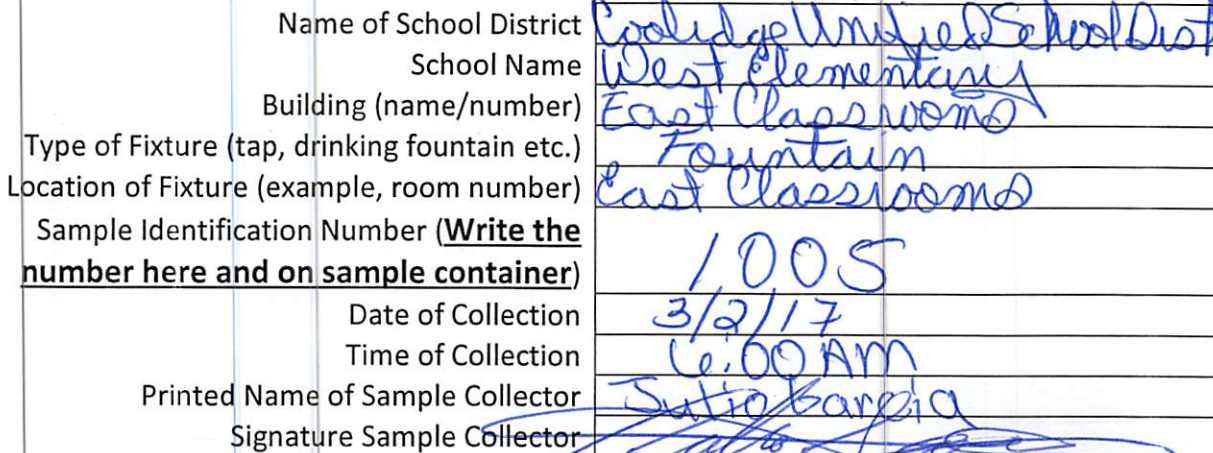 Name of School District Coolidge Unified School Dist
School Name West Elementary
Building (name/number) East Classrooms
Type of Fixture (tap, drinking fountain etc.) Fountain
Location of Fixture (example, room number) East Classrooms
Sample Identification Number (Write the
number here and on sample container) 1005
Date of Collection 3/2/17
Time of Collection 6:00 AM
Printed Name of Sample Collector Julio Garcia
Signature Sample Collector